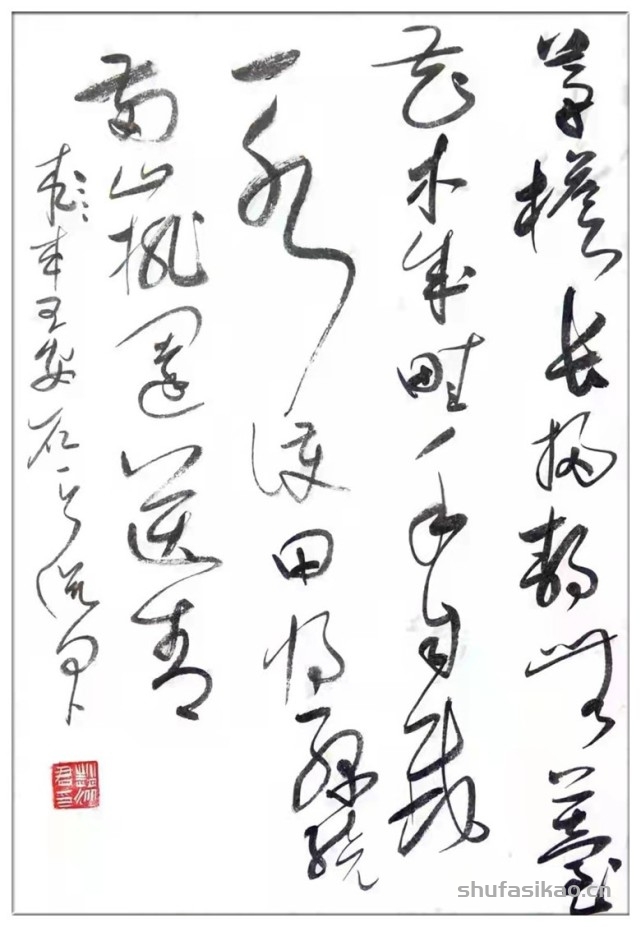 茅檐长扫静无苔
花木成畦手自栽
一水护田将绿绕
两山排闼送青
来 王安石
shufasikao.cn